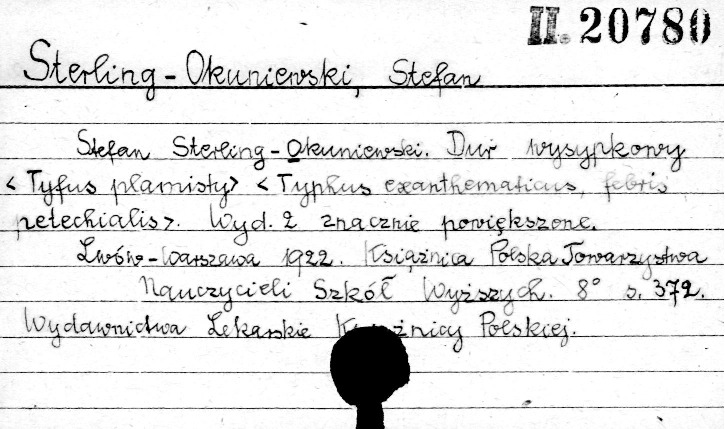 II. 20780
Sterling-Okuniewski, Stefan
Stefan Sterling-Okuniewski. Dur wysypkowy
<Tyfus plamisty> <Typhus exanthematicus, febris
petechialis>. Wyd. 2 znacznie powiększone.
Lwów-Warszawa 1922. Książnica Polska Towarzystwa
Nauczycieli Szkół Wyższych. 8° s. 372.
Wydawnictwa Lekarskie Polskiej.